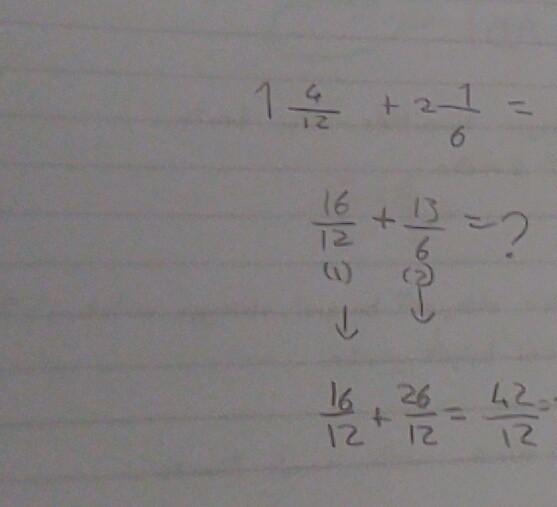 1 4/12 + 2 1/6 =
16/12 + 13/6 = ?
(1) (2)
↓ ↓
16/12 + 26/12 = 42/12 =